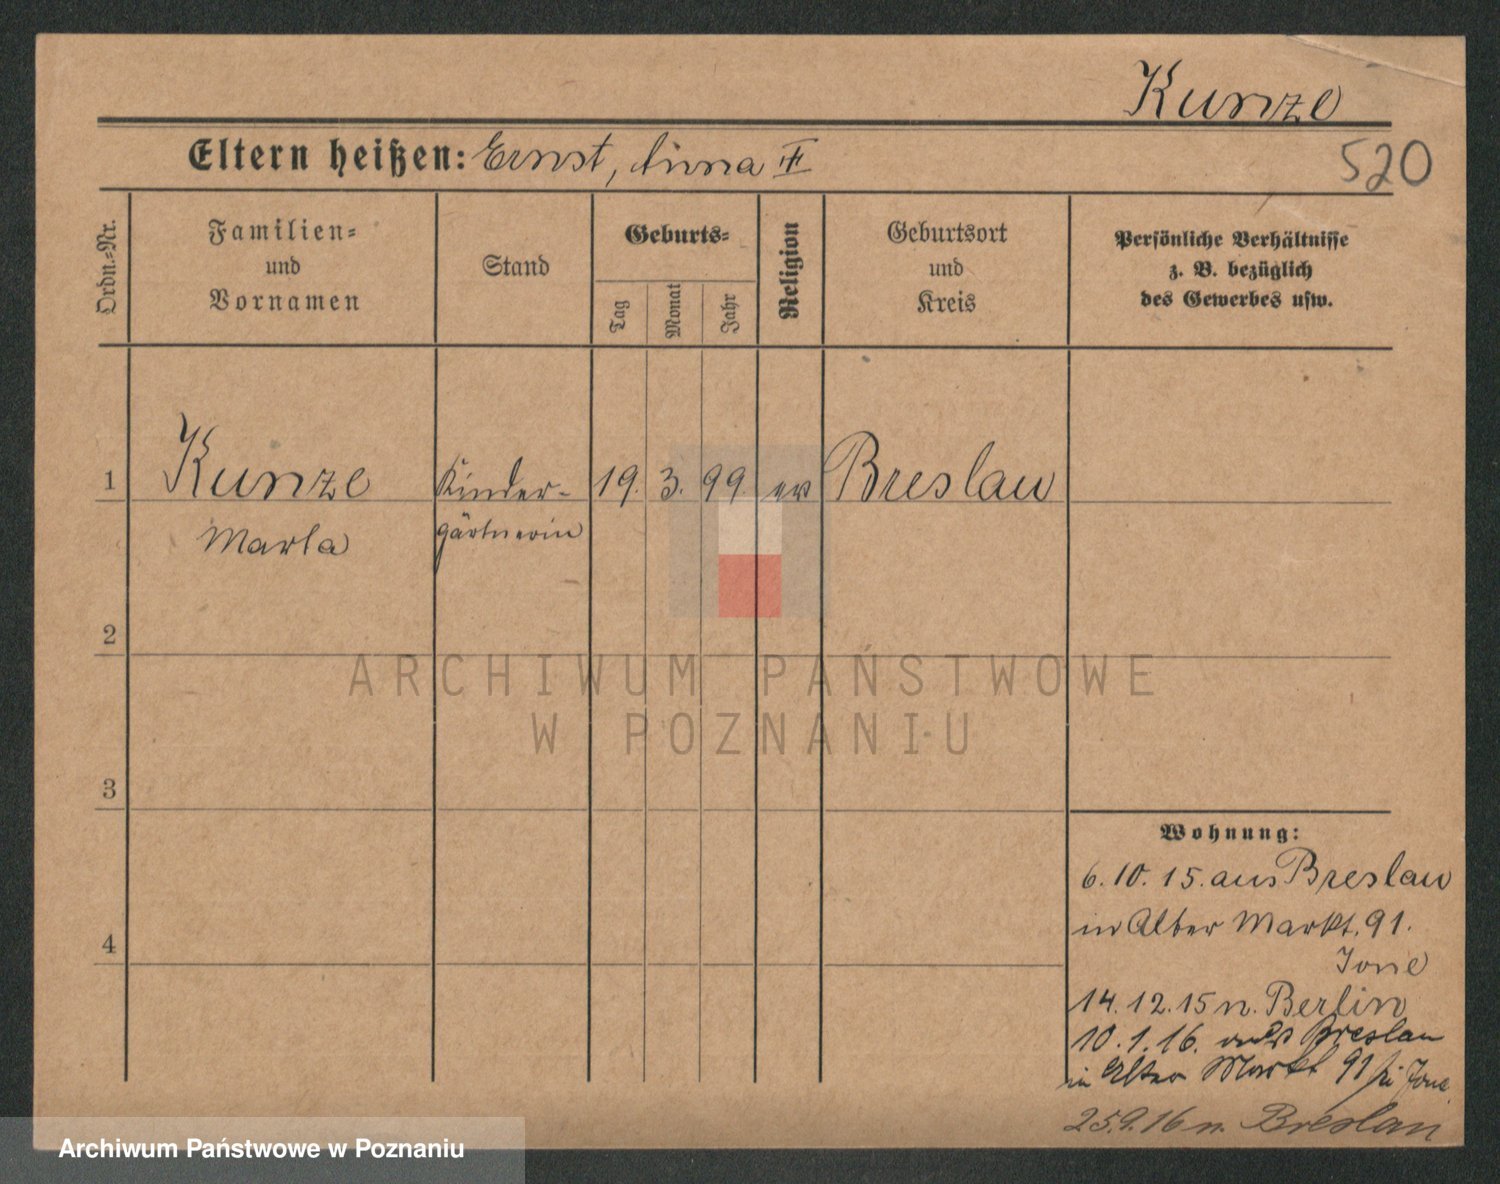 Kunze
Eltern heißen: Ernst, Anna
520
Ordn.-Nr.
Familien-
und
Vornamen
Stand
Geburts-
Tag
Monat
Jahr
Religion
Geburtsort
und
Kreis
Persönliche Verhältnisse
z. B. bezüglich
des Gewerbes usw.
1 Kunze Kinder- 19. 3. 99 ev Breslau
Marta gärtnerin
2
ARCHIWUM PAŃSTWOWE
W POZNANIU
3
Wohnung:
6. 10. 15. aus Breslau
in Alter Markt. 91.
4
14. 12. 15 n. Berlin
10. 1. 16. aus Breslau
in Alter Markt 91
25.9.16 n. Breslau
Archiwum Państwowe w Poznaniu